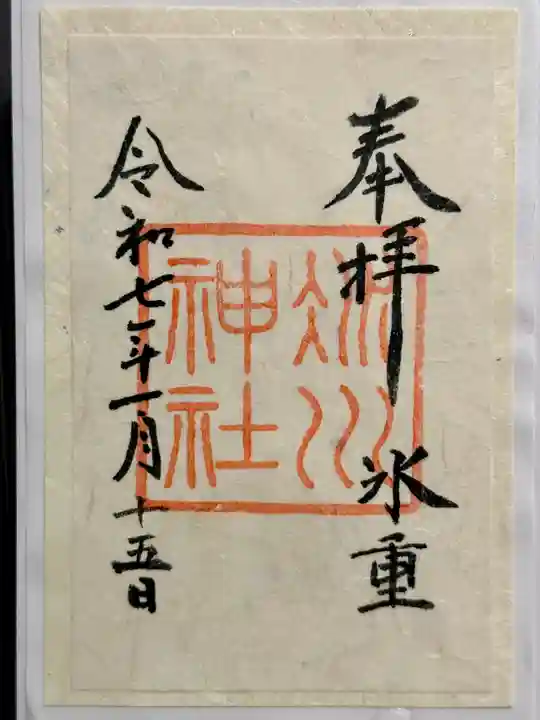 奉拝 氷重
神社
令和七年一月十五日